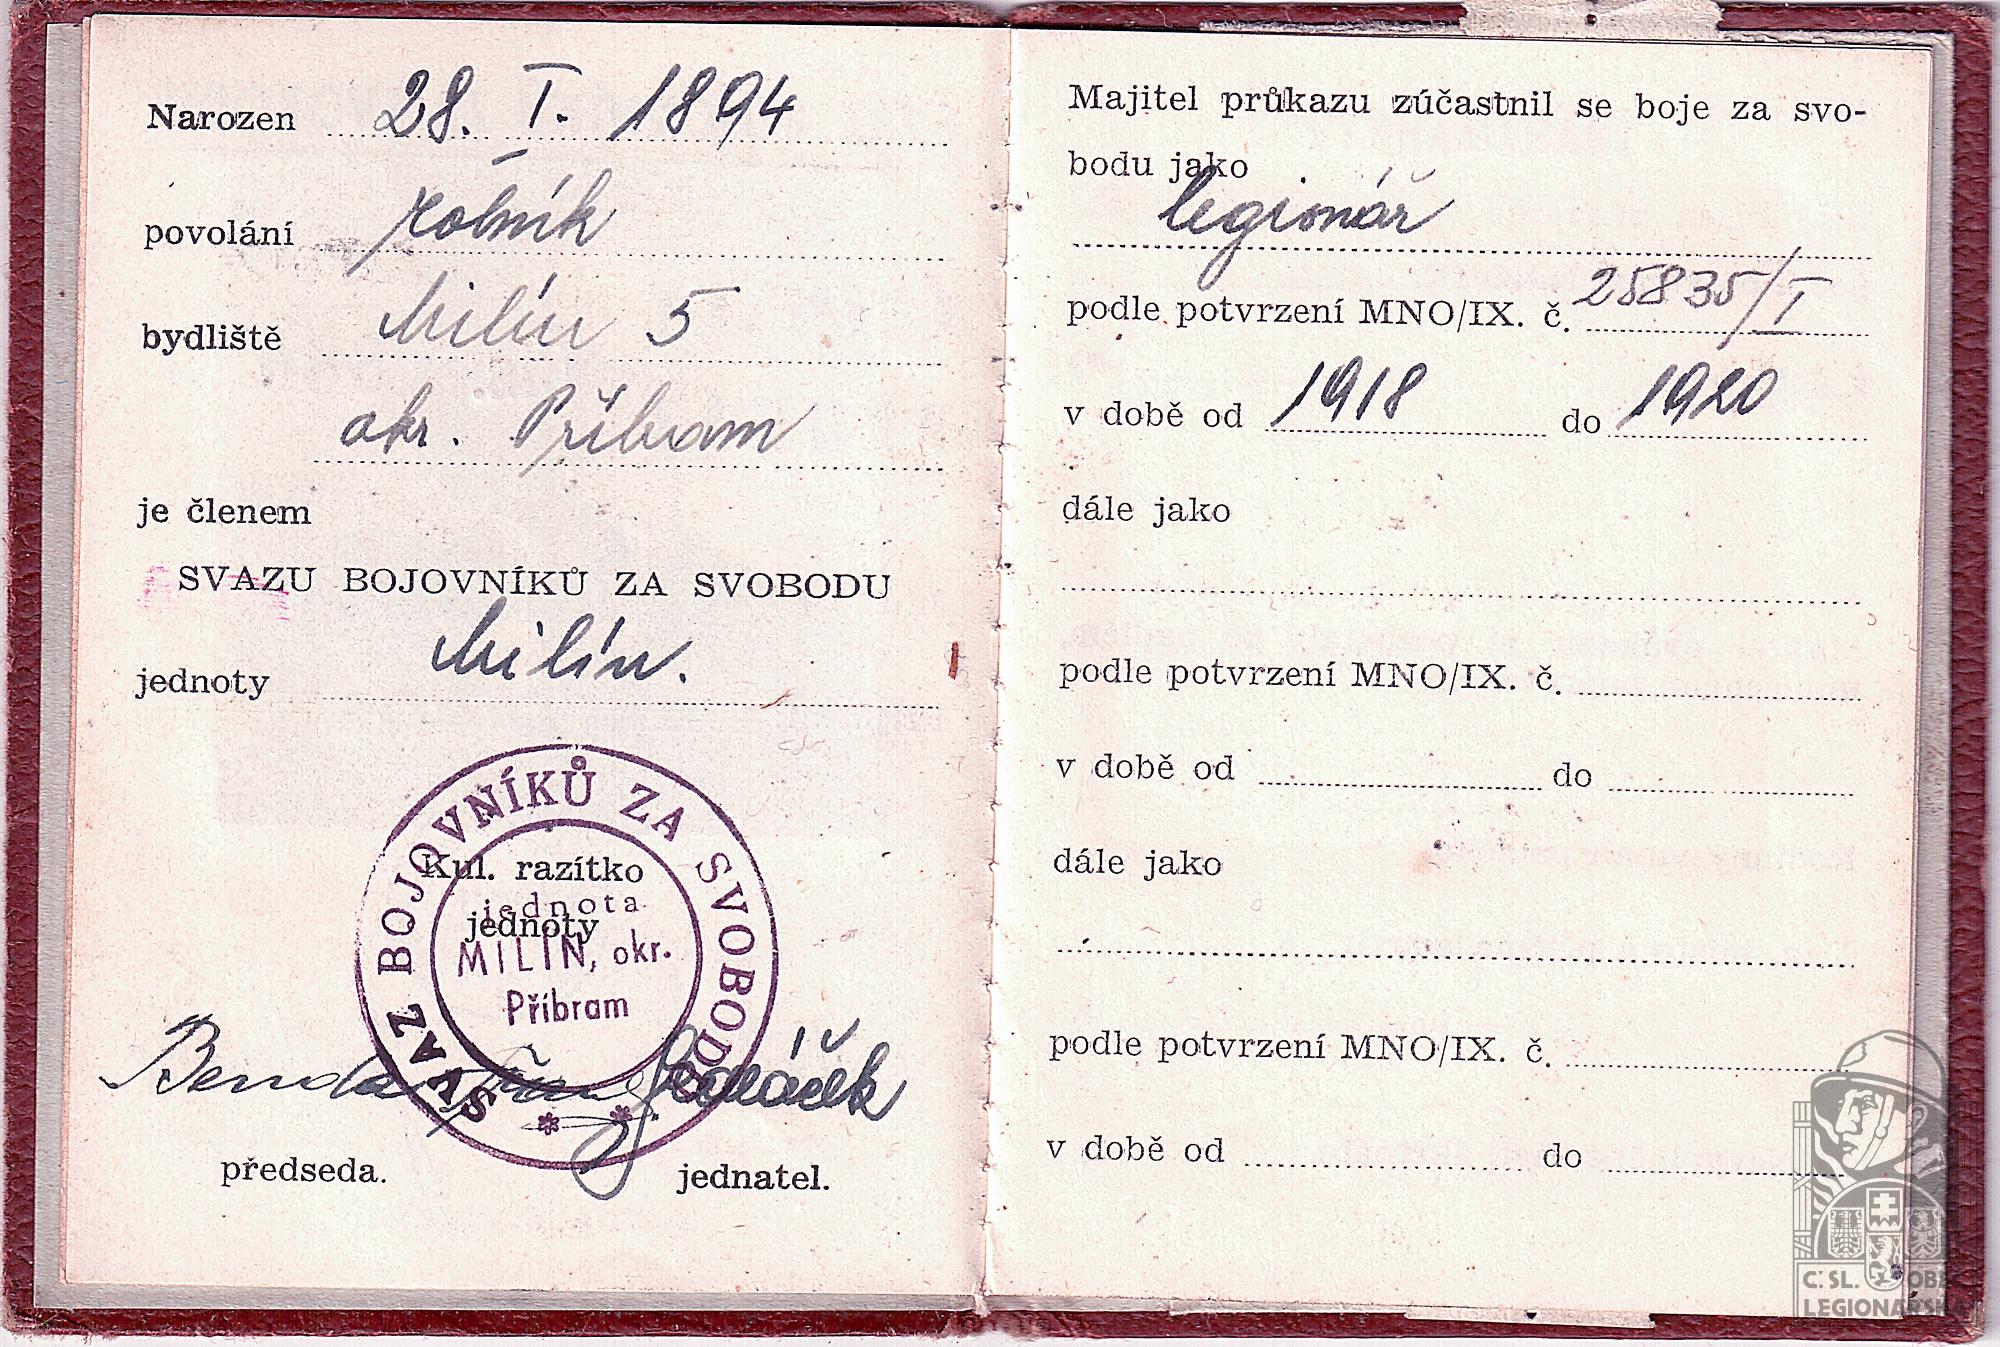 Narozen 28. I. 1894
povolání rolník
bydliště Milín 5
okr. Příbram
je členem
SVAZU BOJOVNÍKŮ ZA SVOBODU
jednoty Milín.
SVAZ BOJOVNÍKŮ ZA SVOBODU
Kul. razítko
jednota
jednoty
MILÍN, okr.
Příbram
Benda
předseda. jednatel.
Majitel průkazu zúčastnil se boje za svo-
bodu jako
legionář
podle potvrzení MNO/IX. č. 25835/I
v době od 1918 do 1920
dále jako
podle potvrzení MNO/IX. č.
v době od do
dále jako
podle potvrzení MNO/IX. č.
v době od do
Č.SL. OBEC
LEGIONÁŘSKÁ